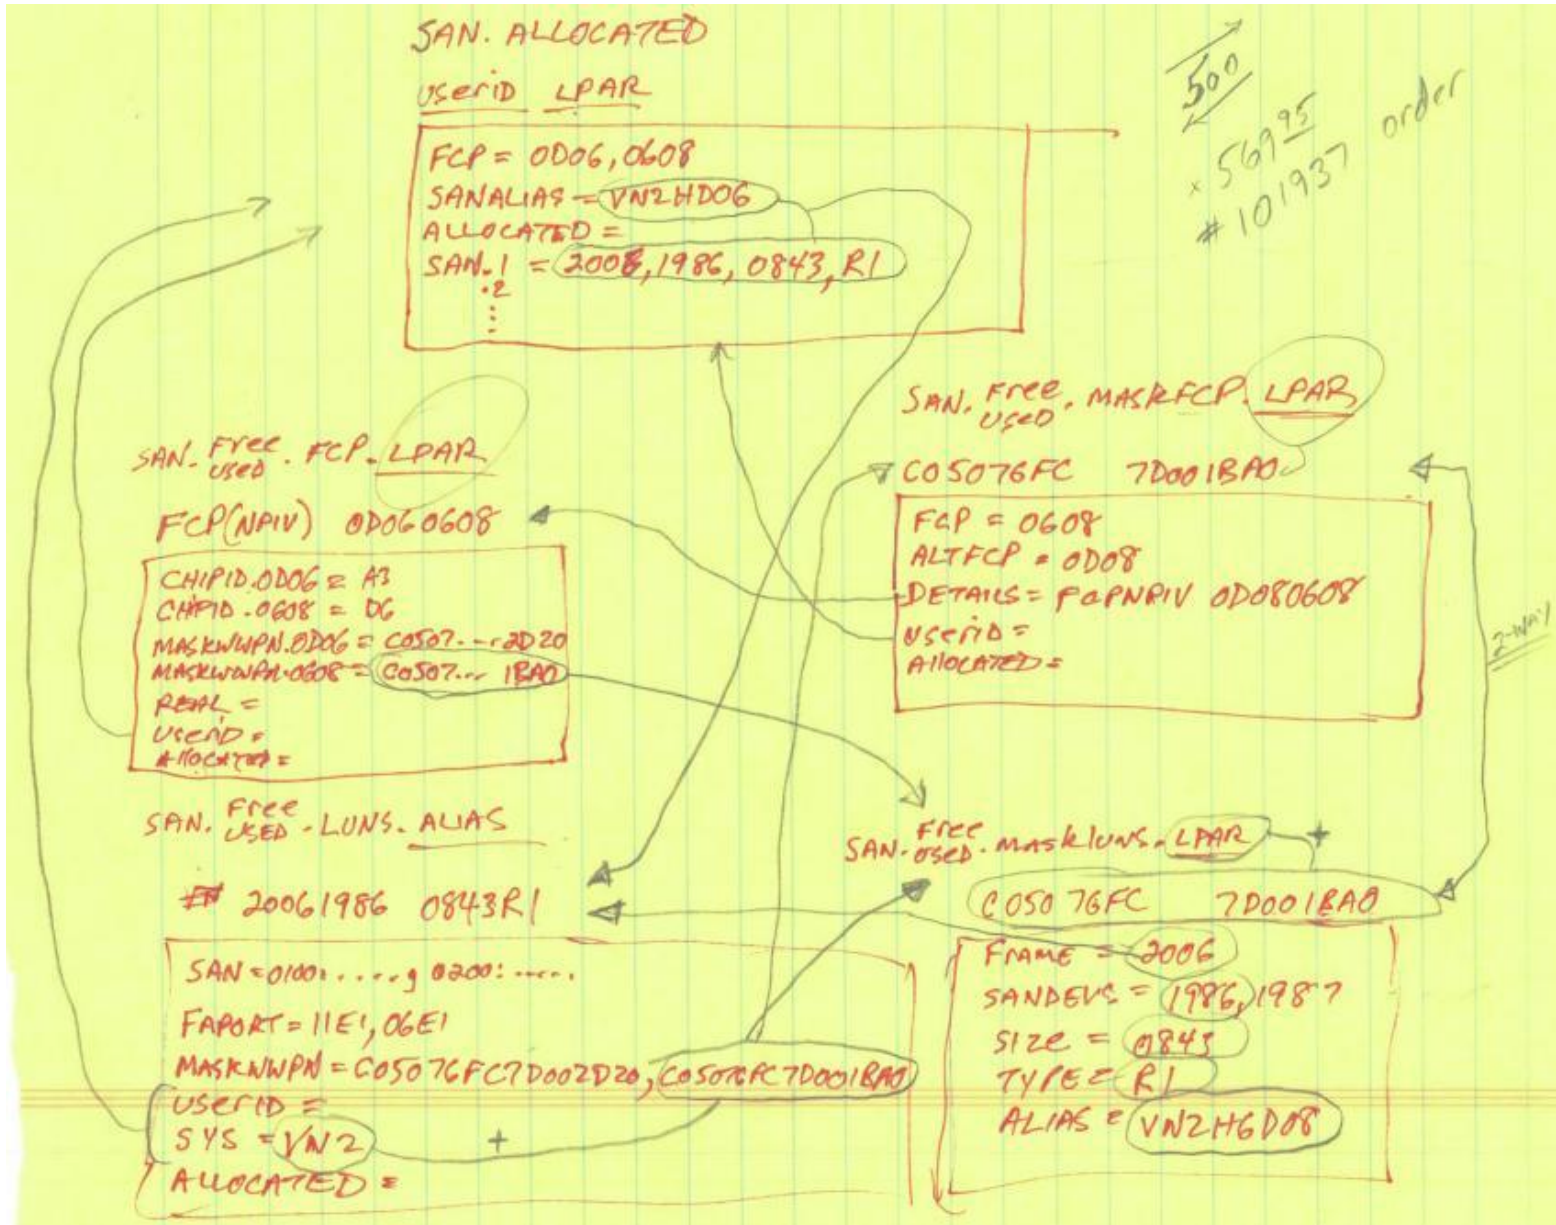 SAN. ALLOCATED
userID LPAR
FCP = 0D06, 0608
SANALIAS = VN2HD06
ALLOCATED =
SAN.1 = 2006, 1986, 0843, R1
.2
⋮
500
x 569 95
# 101937 order
SAN. Free . FCP. LPAR
used
FCP(NPIV) 0D060608
CHIPID.0D06 = A3
CHPID.0608 = D6
MASKWWPN.0D06 = C0507...2D20
MASKWWPN.0608 = C0507... 1BA0
REAL =
userID =
Allocated =
SAN. Free . MASKFCP. LPAR
used
C05076FC 7D001BA0
FCP = 0608
ALTFCP = 0D08
DETAILS = FCPNPIV 0D080608
userID =
Allocated =
2-way
SAN. Free . LUNS. ALIAS
USED
20061986 0843R1
SAN = 0100: ....., 0200: .....
FAPORT = 11E1, 06E1
MASKWWPN = C05076FC7D002D20, C05076FC7D001BA0
USERID =
SYS = VN2 +
ALLOCATED =
SAN. Free . maskluns. LPAR +
used
C05076FC 7D001BA0
FRAME = 2006
SANDEVS = 1986, 1987
SIZE = 0843
TYPE = R1
ALIAS = VN2H6D08